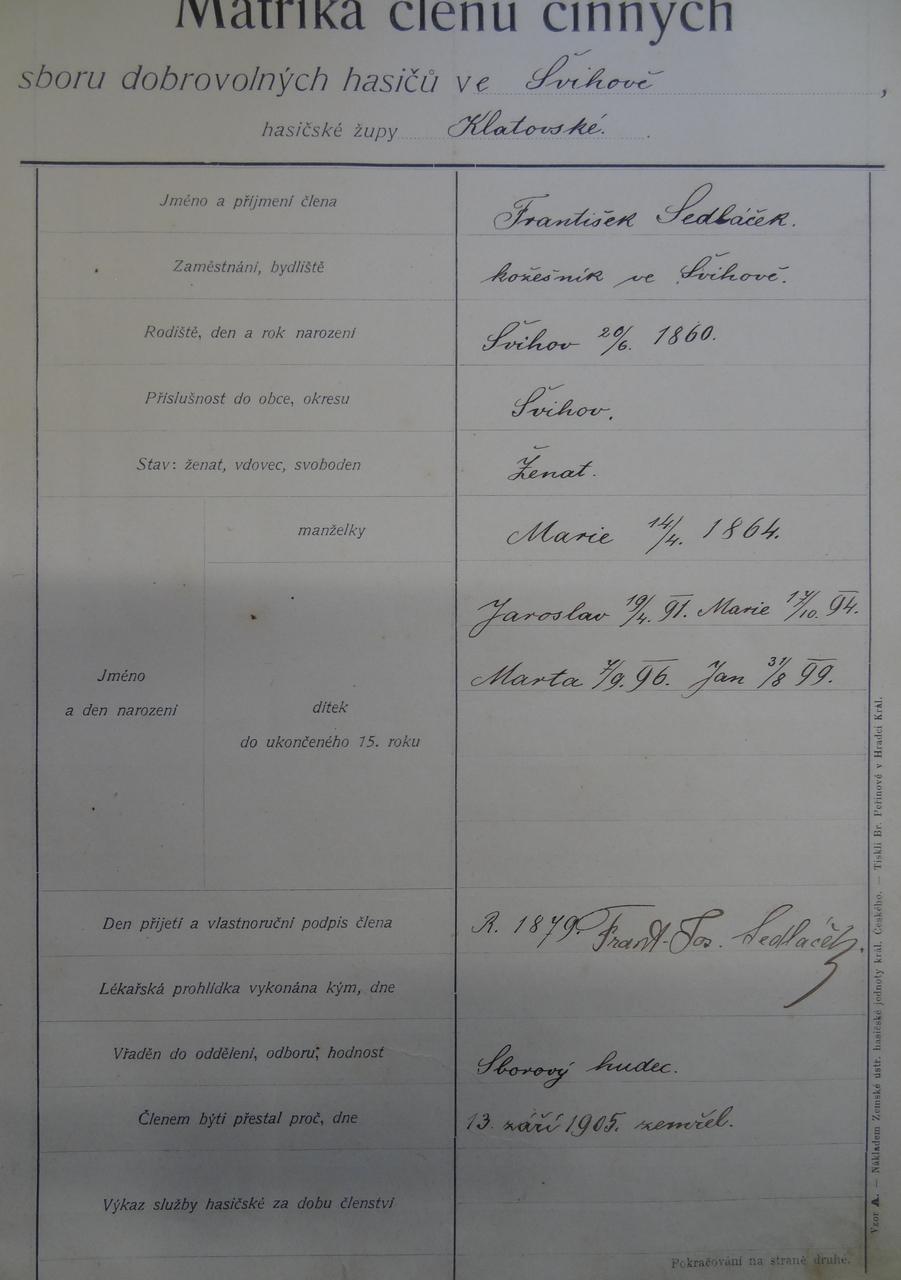 Matrika členů činných
sboru dobrovolných hasičů ve Švihově,
hasičské župy Klatovské.
Jméno a příjmení člena František Sedláček.
Zaměstnání, bydliště kožešník ve Švihově.
Rodiště, den a rok narození Švihov 20/6. 1860.
Příslušnost do obce, okresu Švihov.
Stav: ženat, vdovec, svoboden Ženat.
manželky Marie 14/4. 1864.
Jaroslav 19/4. 91. Marie 17/10. 94.
Jméno
a den narození
dítek
do ukončeného 15. roku
Marta 7/9. 96. Jan 31/8 99.
Den přijetí a vlastnoruční podpis člena R. 1879. Frant. Jos. Sedláček.
Lékařská prohlídka vykonána kým, dne
Vřaděn do oddělení, odboru, hodnost Sborový hudec.
Členem býti přestal proč, dne 13. září 1905. zemřel.
Výkaz služby hasičské za dobu členství
Pokračování na straně druhé.
Vzor A. — Nákladem Zemské ústř. hasičské jednoty král. Českého. — Tiskli Br. Peřinové v Hradci Král.